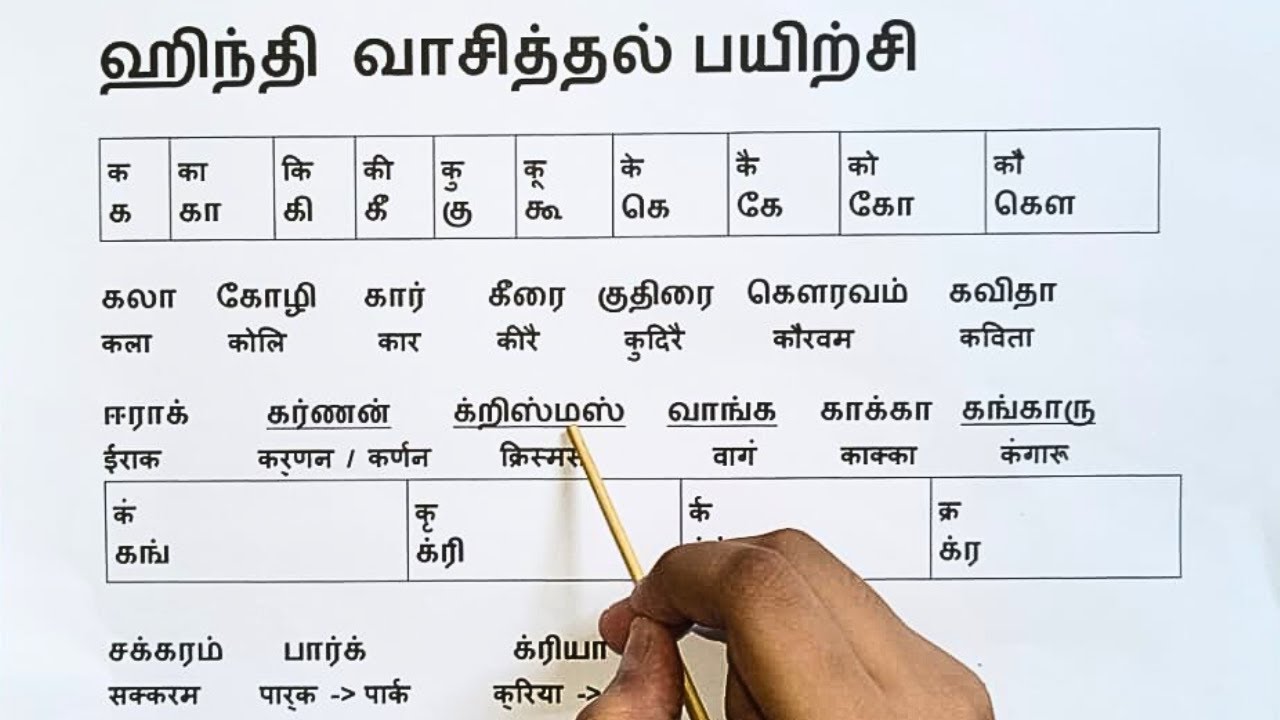 ஹிந்தி வாசித்தல் பயிற்சி
क का कि की कु कू के कै को कौ
க கா கி கீ கு கூ கெ கே கோ கௌ
கலா கோழி கார் கீரை குதிரை கௌரவம் கவிதா
कला कोलि कार कीरै कुदिरै कौरवम कविता
ஈராக் கர்ணன் க்றிஸ்மஸ் வாங்க காக்கா கங்காரு
ईराक कर्‌णन / कर्णन क्रिस्मस वागं काक्का कंगारू
कं कृ र्क क्र
கங் க்ரி க்ர
சக்கரம் பார்க் க்ரியா
सक्करम पार्‌क -> पार्क क्‌रिया ->